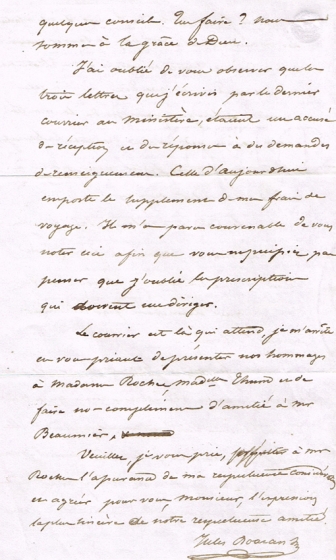 quelques conseils. Qu'en faire ? nous
sommes à la grâce de Dieu.
J'ai oublié de vous observer que les
trois lettres que j'écrivis par le dernier
courrier au Ministère, étaient un accusé
de réception et des réponses à des demandes
de renseignemens. Celle d'aujourd'hui
emporte le supplément de mes frais de
voyage. Il m'a paru convenable de vous
noter ceci afin que vous ne puissiez pas
penser que j'oublie les prescriptions
qui doivent me diriger.
Le courrier est là qui attend, je m'arrête
en vous priant de présenter nos hommages
à Madame Roche, Madelle et de
faire nos complimens d'amitié à Mr
Beaumier,
Veuillez, je vous prie, à Mr
Roche l'assurance de ma respectueuse
et agréer pour vous, Monsieur, l'expression
la plus sincère de notre respectueuse amitié
Jules